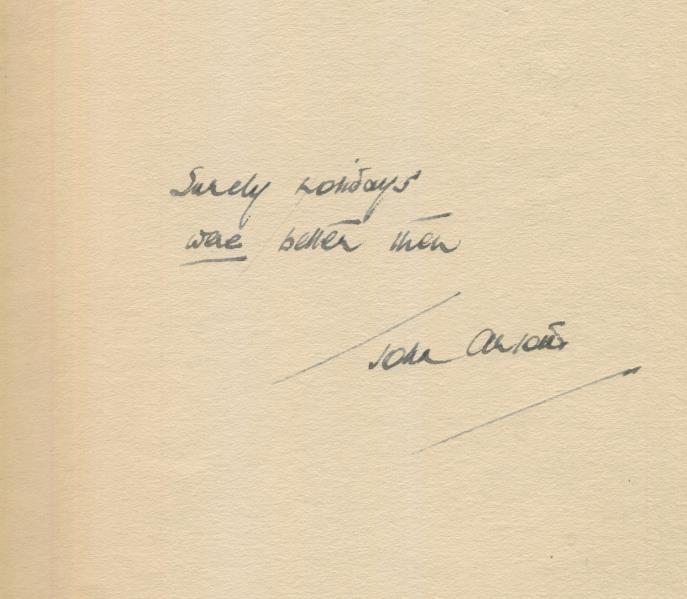 Surely holidays
were better then
John Arlott